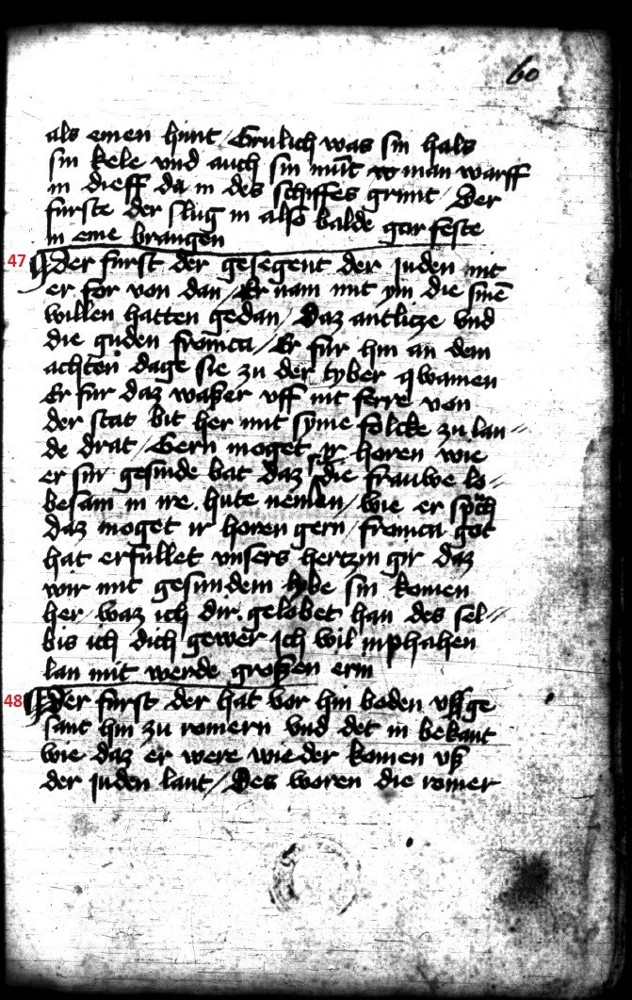 60
als einen hunt / Grulich was sin hals
sin kele vnd auch sin mut wo man warff
in dieff da in des schiffes grunt / Der
furste der slug in also balde gar feste
in eine brangen
47 Der furst der gesegent der Juden mit
er for von dan / Er nam mit ym die sinē
willen hatten gedan / Daz antlicze vnd
die guden fronica / Er fur hin an dem
achten dage sie zu der tyber qwamen
Er fur daz waßer uff nit ferre von
der stat bit her mit syme folcke zu lan
de drat / Gern moget ir horen wie
er sin gesinde bat daz sie die frauwe lo
besam in ire hute nemen / wie er spch
daz moget ir horen gern / fronica got
hat erfullet vnsers hertzin gir daz
wir mit gesundem libe sin komen
her / waz ich dir gelobet han des sel
bis ich dich gewer Ich wil inphahen
lan mit werde großen erin
48 Der furst der hat vor hin boden vßge
sant hin zu romern vnd det in bekant
wie daz er were wieder komen vß
der Juden lant / Des woren die romer